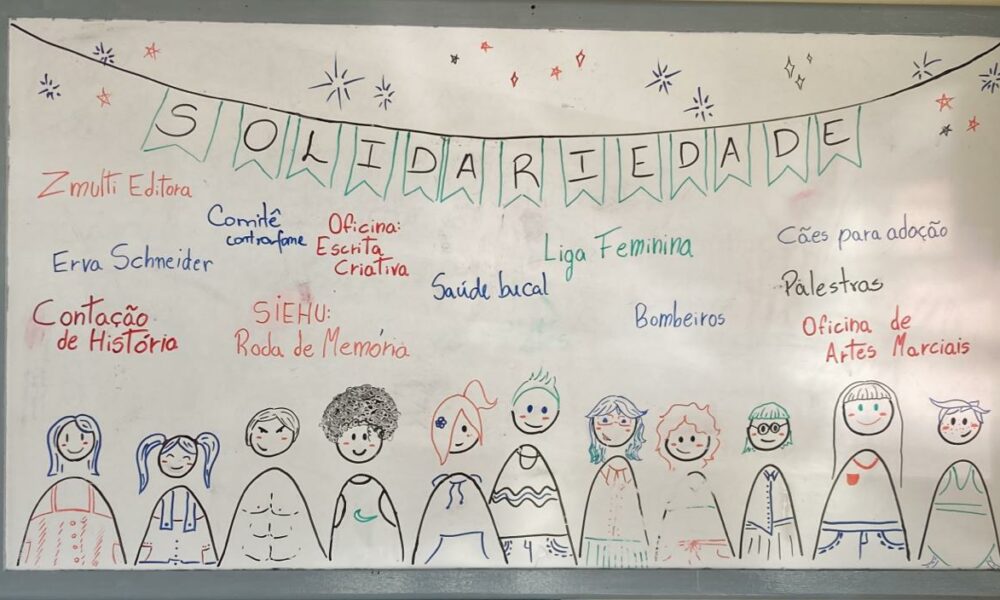 SOLIDARIEDADE
Zmulti Editora
Comitê
contrafome
Oficina:
Escrita
Criativa
Erva Schneider
Saúde bucal
Liga Feminina
Cães para adoção
Palestras
Contação
de História
SiEHU:
Roda de Memória
Bombeiros
Oficina de
Artes Marciais